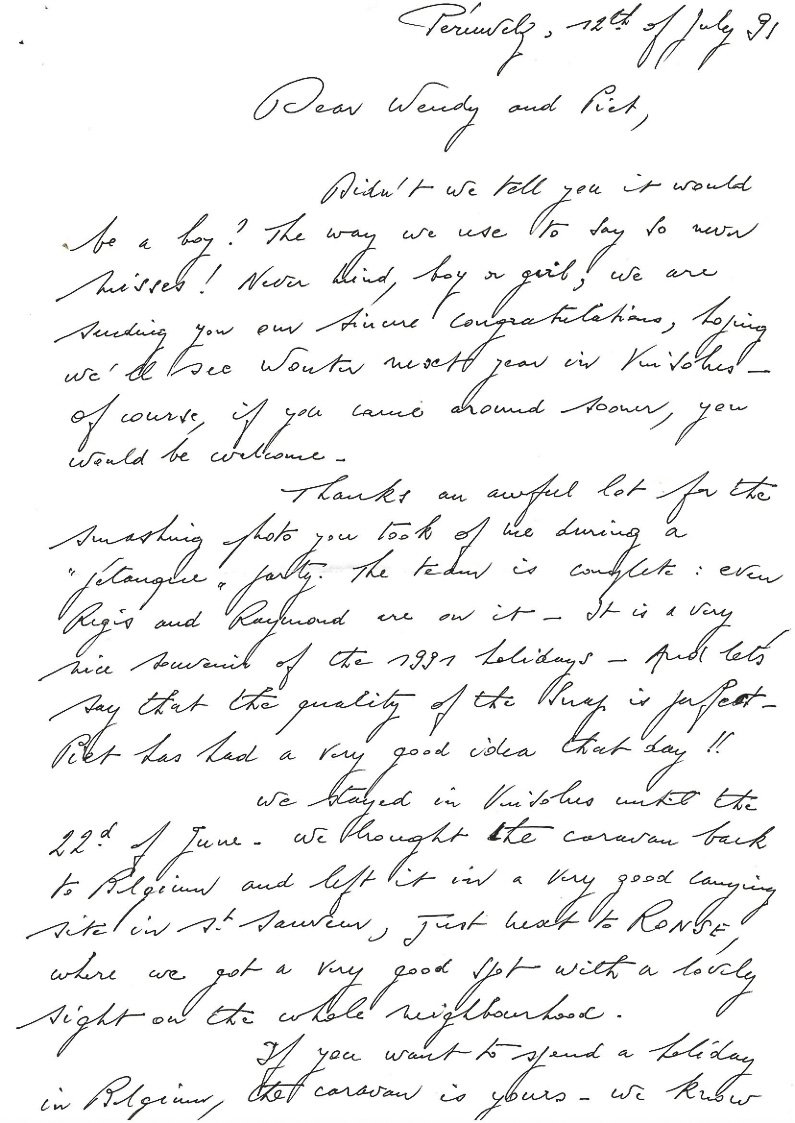 Péruwelz, 12th of July 91
Dear Wendy and Piet,
Didn't we tell you it would
be a boy? The way we use to say so never
misses! Never mind, boy or girl, we are
sending you our sincere congratulations, hoping
we'll see Wouter next year in Vinsobres -
of course, if you came around sooner, you
would be welcome -
Thanks an awful lot for the
smashing photo you took of me during a
"pétanque" party. The team is complete : even
Régis and Raymond are on it - It is a very
nice souvenir of the 1991 holidays - And let's
say that the quality of the snap is perfect -
Piet has had a very good idea that day !!
We stayed in Vinsobres until the
22d of June - We brought the caravan back
to Belgium and left it in a very good camping
site in St Sauveur, just next to RONSE,
where we got a very good spot with a lovely
sight on the whole neighbourhood.
If you want to spend a holiday
in Belgium, the caravan is yours - we know